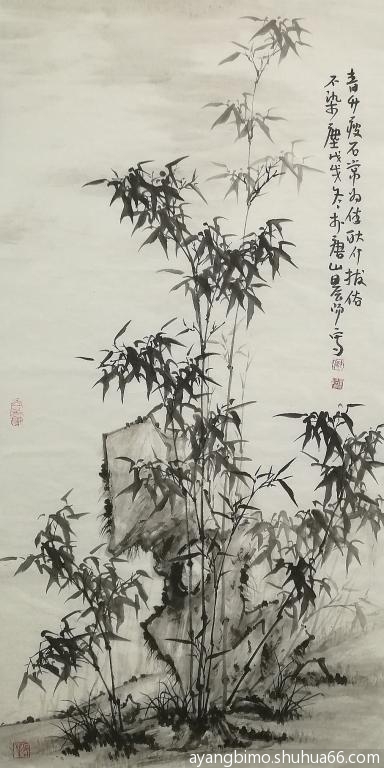 青竹瘦石常为佳耿介拔俗
不染塵戊戌冬于唐山写
ayangbimo.shuhua66.com